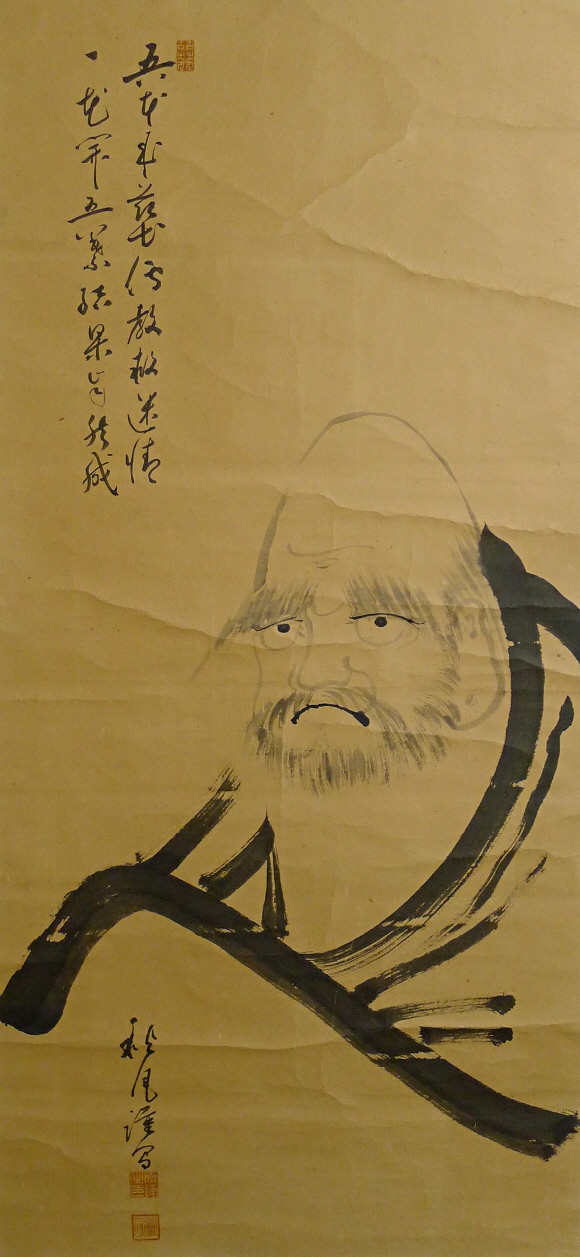 吾本来茲土傳教救迷情
一花開五葉結果自然成
謹写